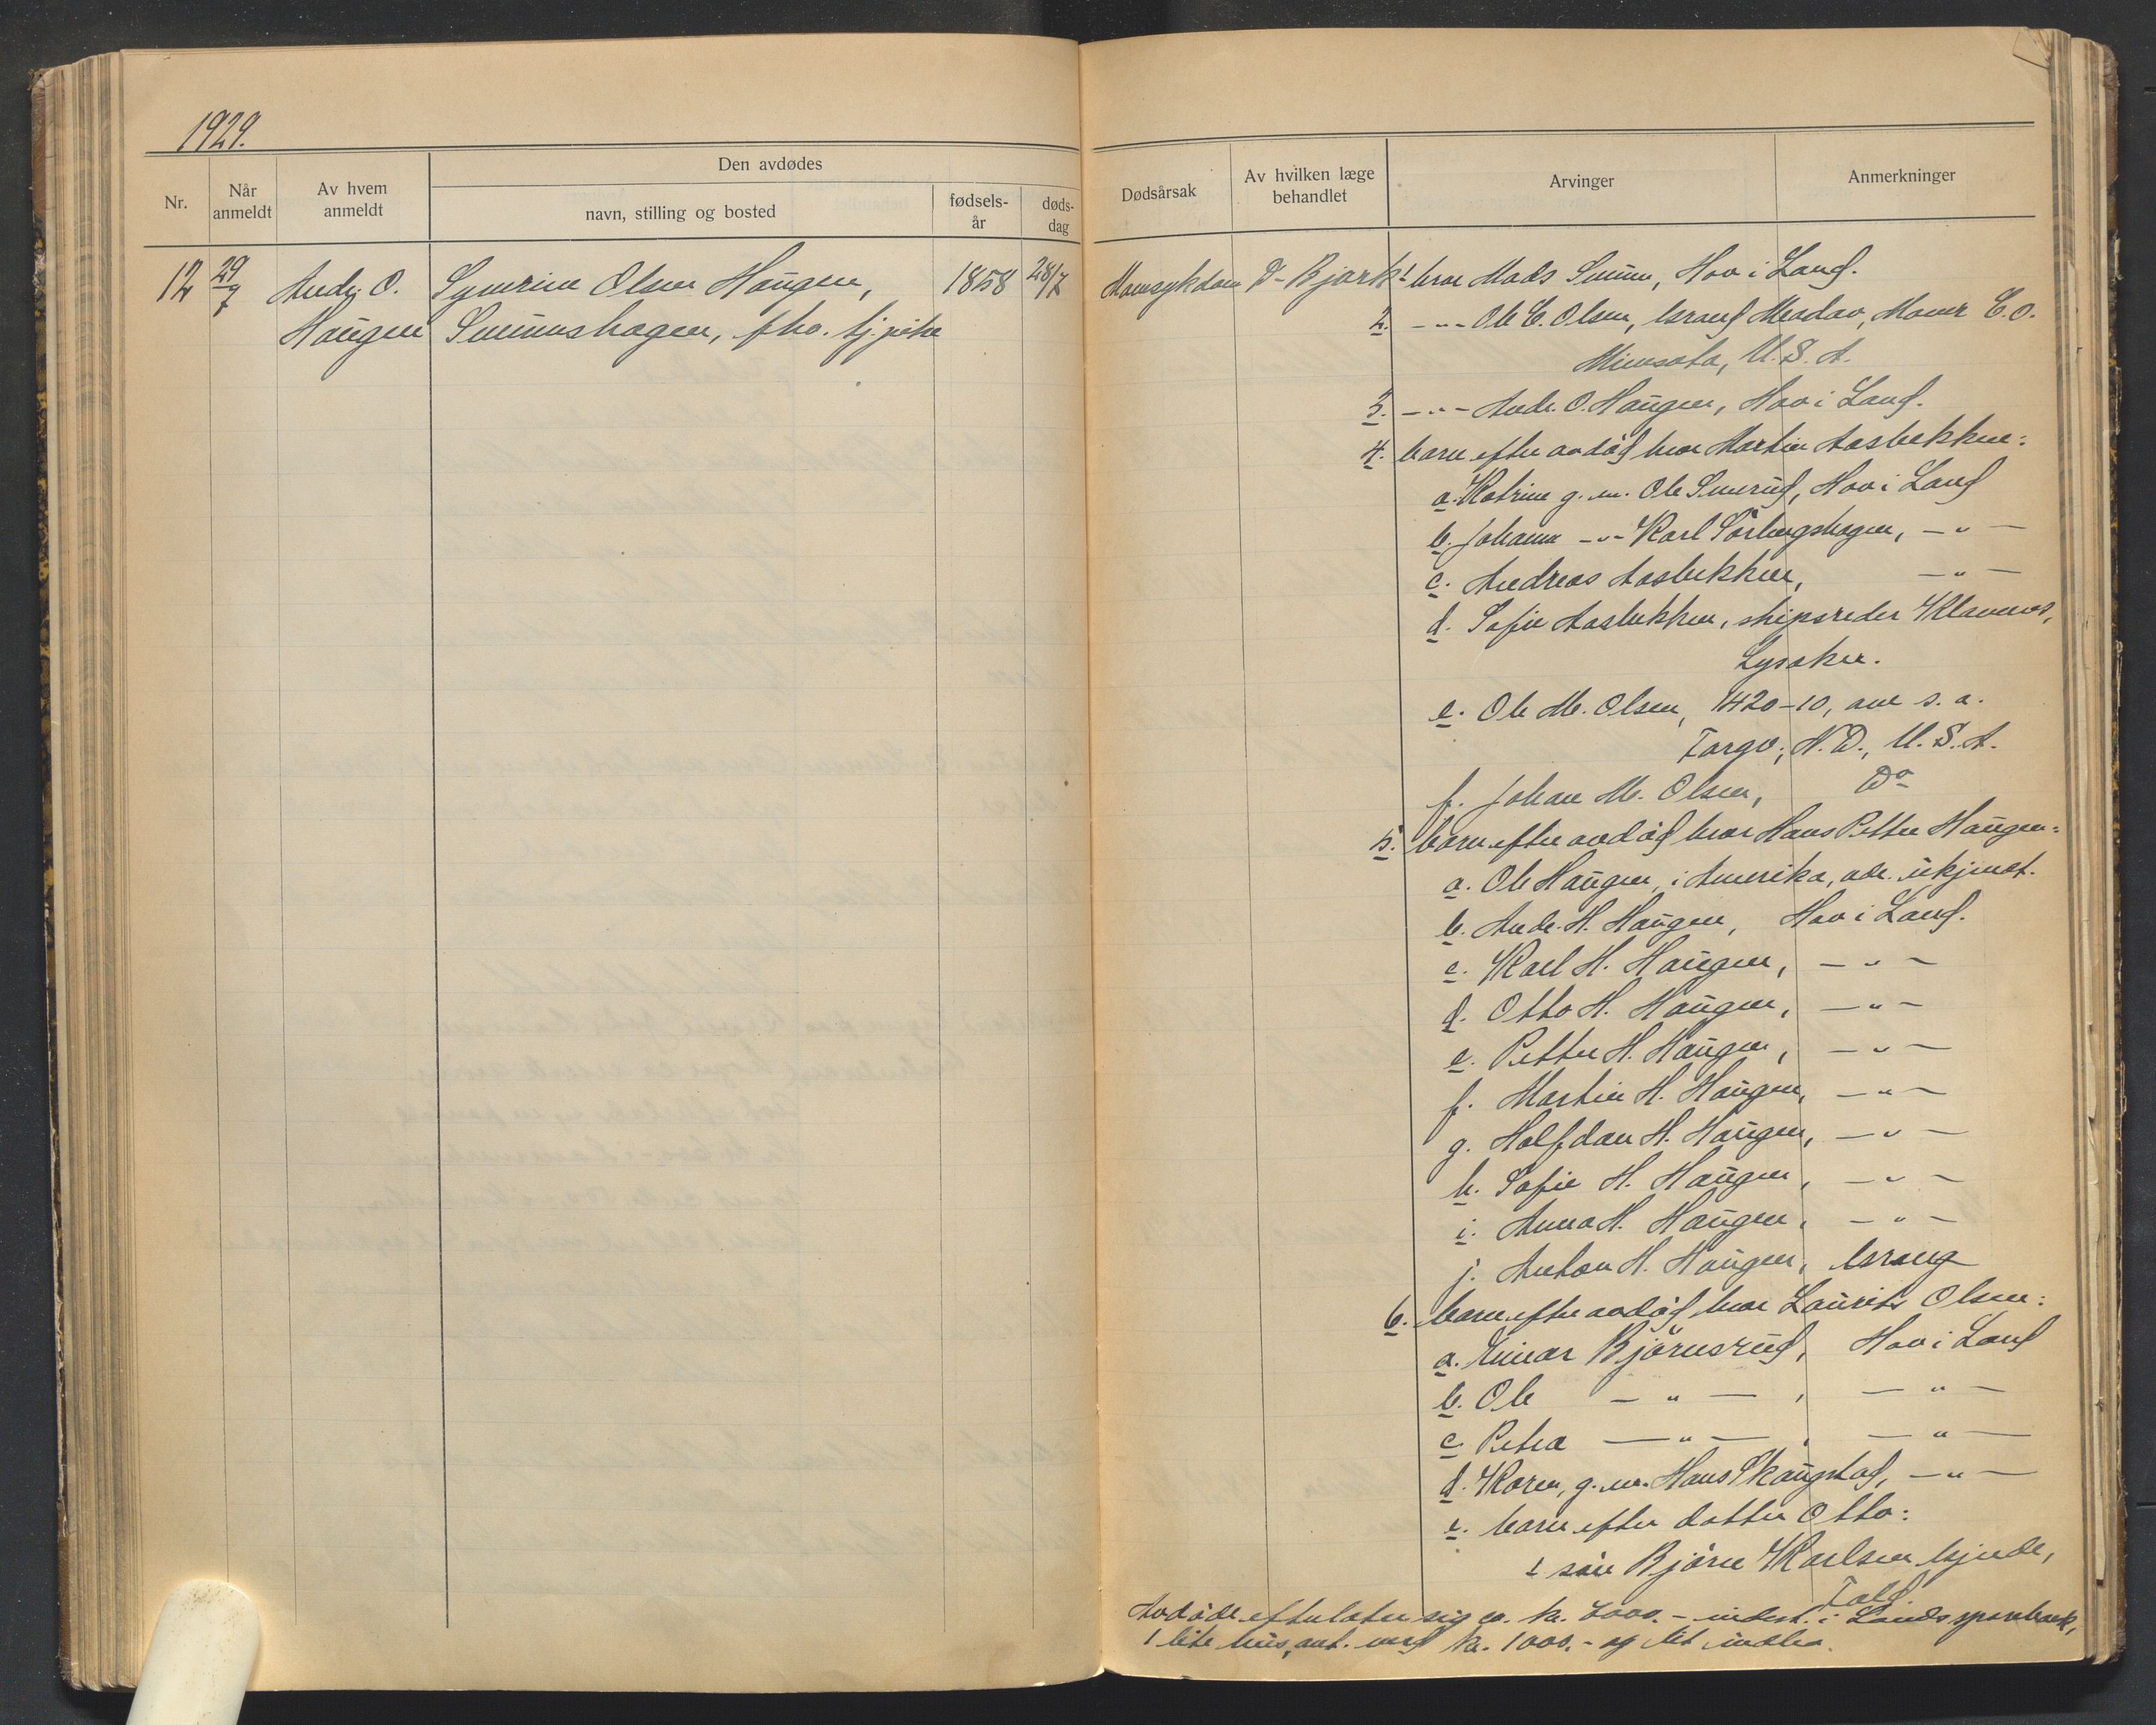 1929.
Nr.
Når anmeldt
Av hvem anmeldt
Den avdødes
navn, stilling og bosted
fødsels-år
døds-dag
Dødsårsak
Av hvilken læge behandlet
Arvinger
Anmerkninger
12 29/7 Andr. O. Synnrine Olsen Haugen, 1858 28/7
Haugen fhv. tj.pike
Mavesykdom Dr Bjørk
1. bror Mads Smiun, Hov i Land.
2. -"- Ole C. Olsen, Grand Meadov, Mover C.O.
Minesota, U.S.A.
3. -"- Andr. O. Haugen, Hov i Land.
4. barn efter avdød bror Martin Aasbekken:
a. Katrine g.m. Ole Smerud, Hov i Land
b. Johanne -"- Karl Sørlungshagen, -"-
c. Andreas Aasbekken, -"-
d. Sofie Aasbekken, skipsreder Klavenes,
Lysaker.
e. Ole M. Olsen, 1420-10, ave s.a.
Fargo, N.D., U.S.A.
f. Johan M. Olsen, Do
5. barn efter avdød bror Hans Petter Haugen:
a. Ole Haugen, i Amerika, adr. ukjendt.
b. Andr. H. Haugen, Hov i Land.
c. Karl H. Haugen, -"-
d. Otto H. Haugen, -"-
e. Petter H. Haugen, -"-
f. Martin H. Haugen, -"-
g. Halfdan H. Haugen, -"-
h. Sofie H. Haugen, -"-
i. Anna H. Haugen, -"-
j. Anton H. Haugen,
6. barn efter avdød bror Laurits Olsen:
a. Einar Bjørnsrud, Hov i Land
b. Ole -"-, -"-
c. Petra -"-, -"-
d. Karen, g.m. Hans Skaugstad, -"-
e. barn efter datter Otta:
1 søn Bjørn Karlsen
Avdøde efterlater sig ca. kr. 2000.- indest. i Lands sparebank,
1 lite hus, ant. verd kr. 1000.- og litt indbo.